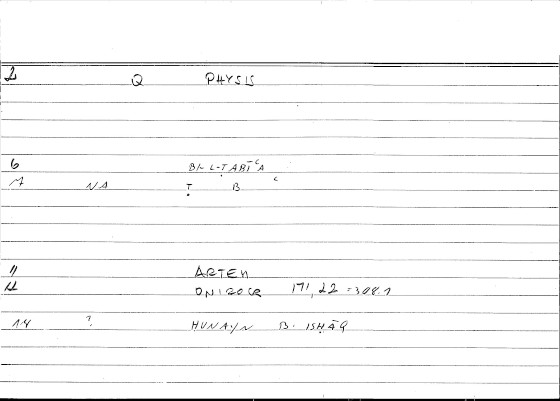 1 Q PHYSIS
6 BI-L-ṬABĪʿA
7 NA Ṭ B ʿ
11 ARTEM
12 ONIROCR 171,22 = 308.1
14 ? HUNAYN B. ISḤĀQ